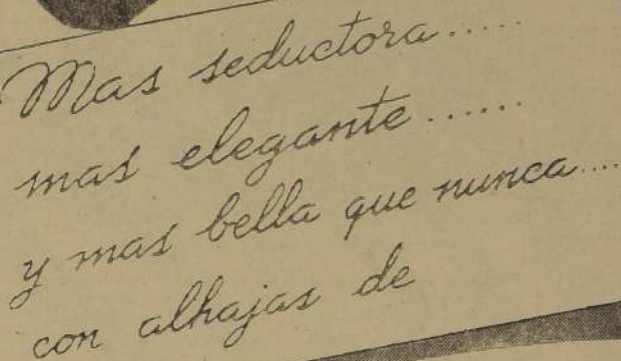 Mas seductora.....
mas elegante......
y mas bella que nunca....
con alhajas de